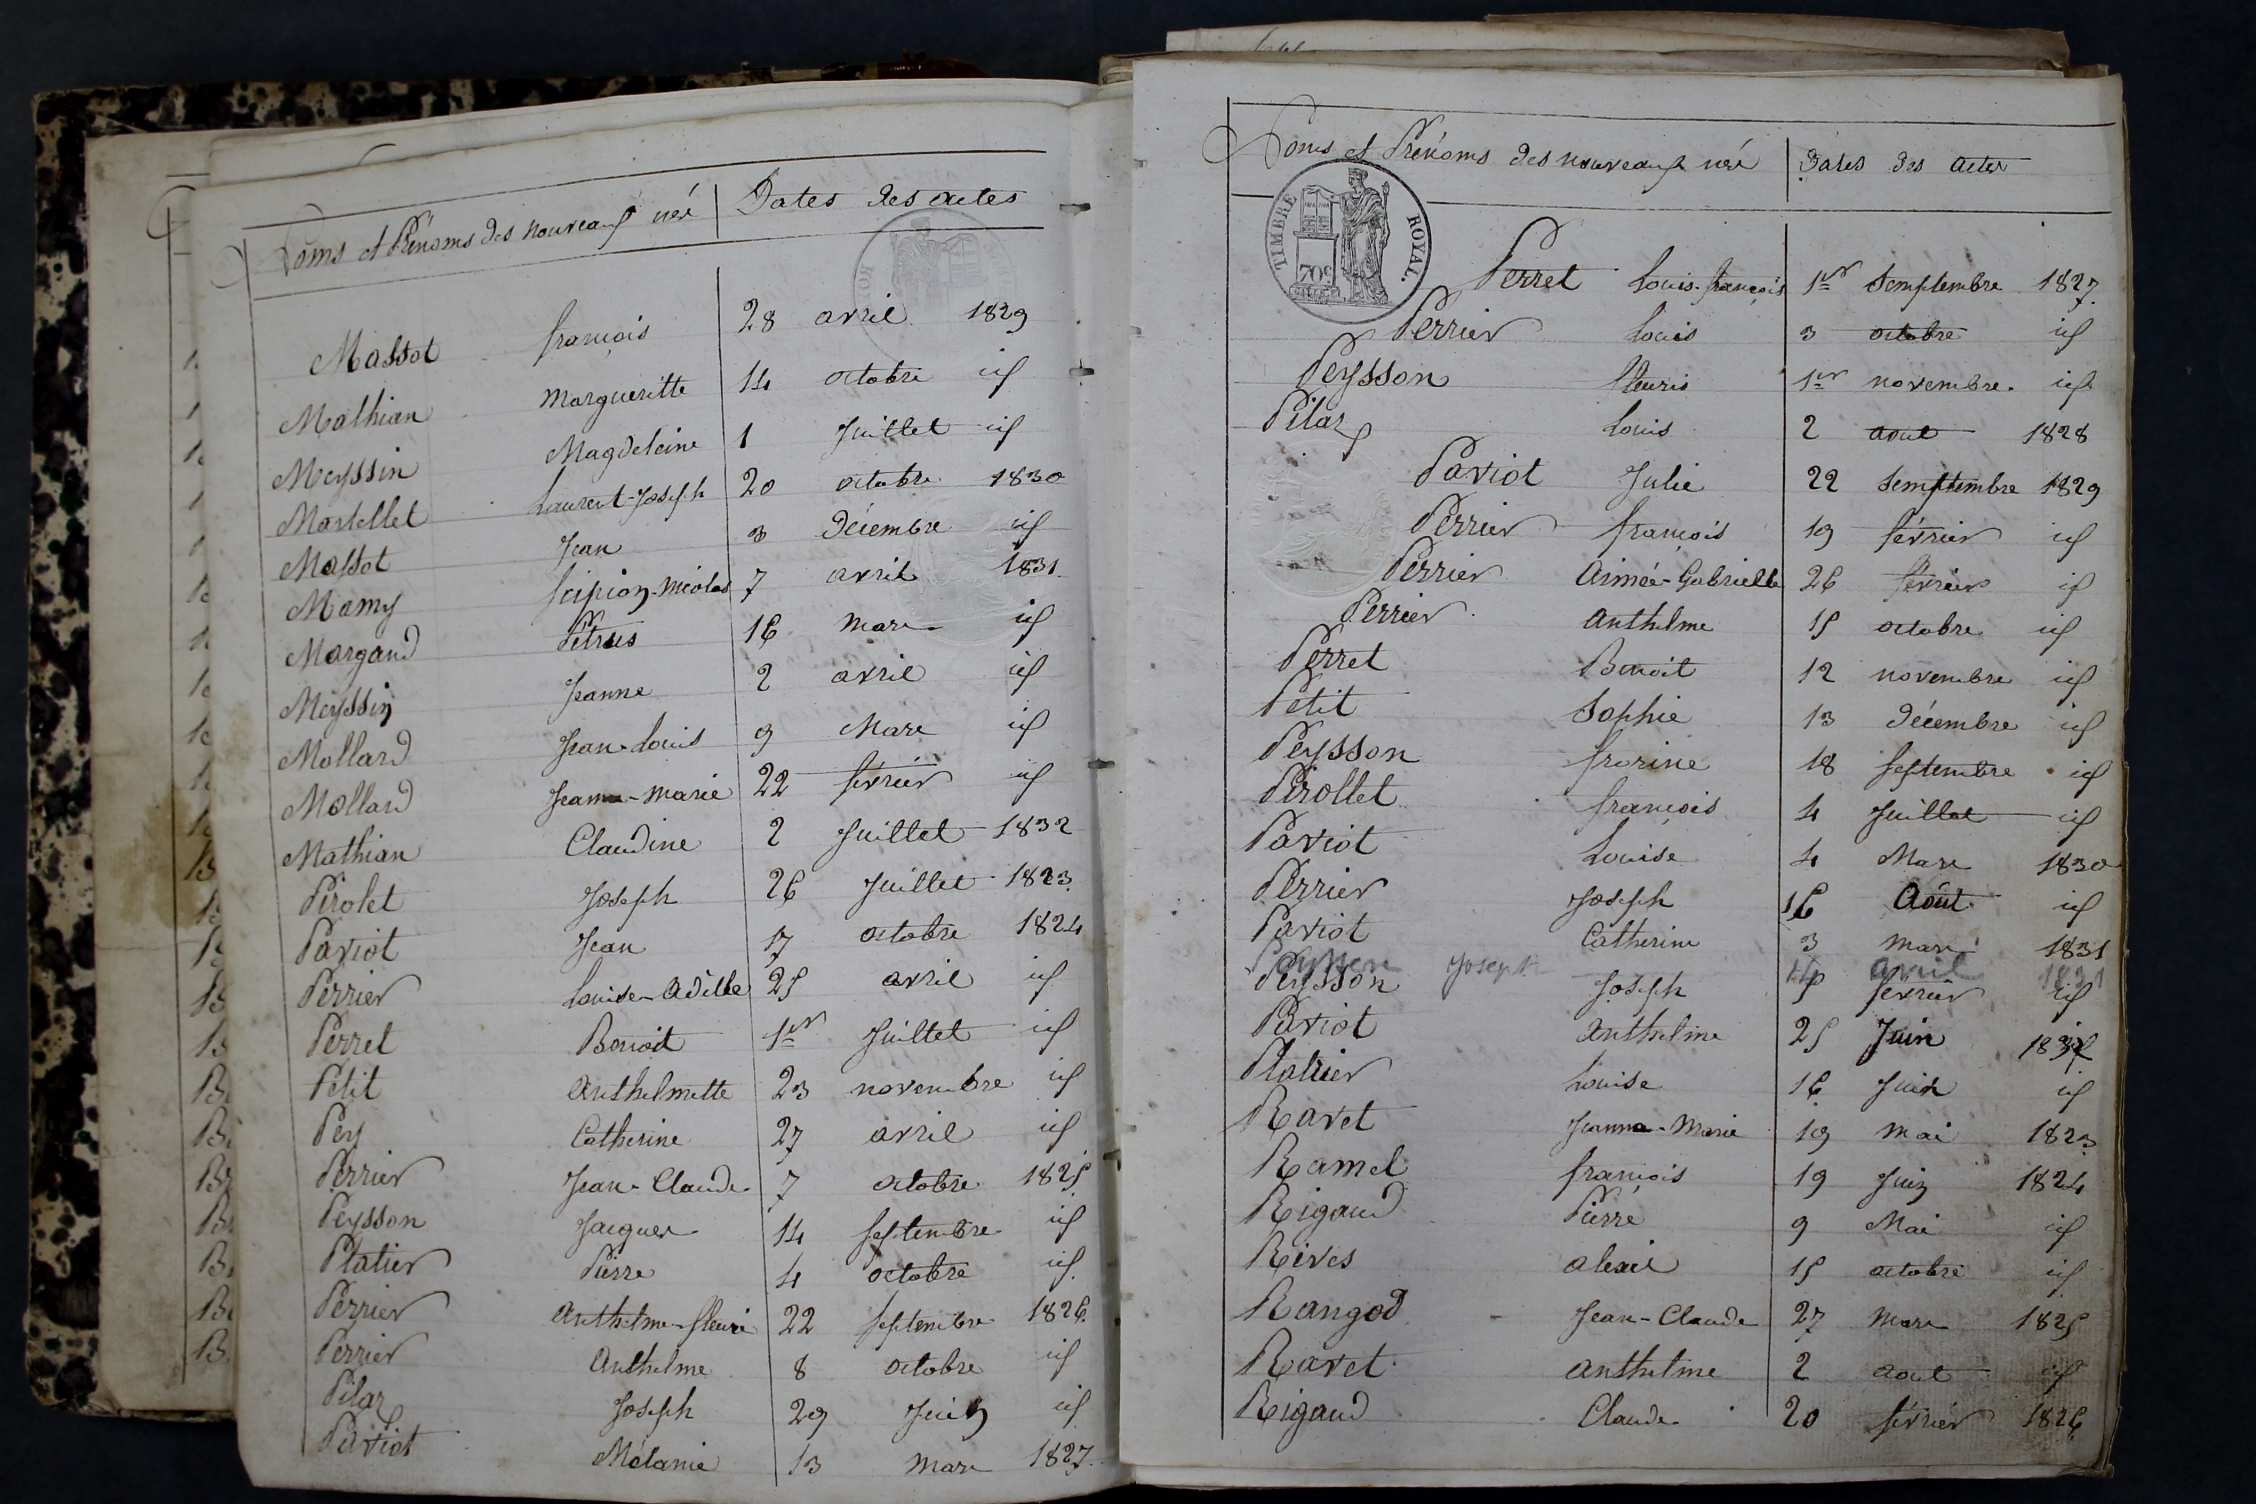 Noms et Prénoms des nouveaux nés Dates des actes
Massot françois 28 avril 1829
Mathian Margueritte 14 octobre id
Meyssin Magdeleine 1 Juillet id
Martellet Laurent-Joseph 20 octobre 1830
Massot Jean 3 Décembre id
Mamy Scipion-Nicolas 7 avril 1831
Margand Pétrus 16 Mars id
Meyssin Jeanne 2 avril id
Mollard Jean-Louis 9 Mars id
Mollard Jeanne-Marie 22 février id
Mathian Claudine 2 Juillet 1832
Pirolet Joseph 26 Juillet 1823
Paviot Jean 17 octobre 1824
Perrier Louise-Adèlle 25 avril id
Perret Benoit 1er Juillet id
Petit Anthelmette 23 novembre id
Pey Catherine 27 avril id
Perrier Jean-Claude 7 octobre 1825
Peysson Jacques 14 septembre id
Platier Pierre 4 octobre id
Perrier Anthelme-fleuri 22 septembre 1826
Perrier Anthelme 8 octobre id
Pilaz Joseph 29 Juin id
Paviot Mélanie 13 Mars 1827
Noms et Prénoms des nouveaux nés Dates des actes
TIMBRE ROYAL.
70c
Perret Louis-françois 1er Semptembre 1827
Perrier Louis 3 octobre id
Peysson fleuris 1er novembre id
Pilaz Louis 2 aout 1828
Paviot Julie 22 Semptembre 1829
Perrier françois 19 février id
Perrier Aimée-Gabrielle 26 février id
Perrier Anthelme 15 octobre id
Perret Benoit 12 novembre id
Petit Sophie 13 Décembre id
Peysson 18 septembre id
Pirollet françois 4 Juillet id
Paviot Louise 4 Mars 1830
Perrier Joseph 16 Août id
Paviot Catherine 3 mars 1831
Peysson Joseph 14 avril 1831
Peysson Joseph 5 fevrier id
Paviot Anthelme 25 Juin
Platier Louise 16 Juin id
Ravet Jeanne-Marie 19 Mai 1823
Ramel françois 19 Juin 1824
Rigaud Pierre 9 Mai id
Rives alexis 15 octobre id
Rangod Jean-Claude 27 Mars 1825
Ravet anthelme 2 aout id
Rigaud Claude 20 février 1826